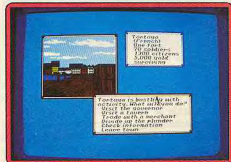 Tortuga
(French)
One fort
70 soldiers
1,300 citizens
5,000 gold
surviving
Tortuga is bustling with
activity. What will you do?
Visit the governor
Visit a tavern
Trade with a merchant
Divide up the plunder
Check information
Leave town